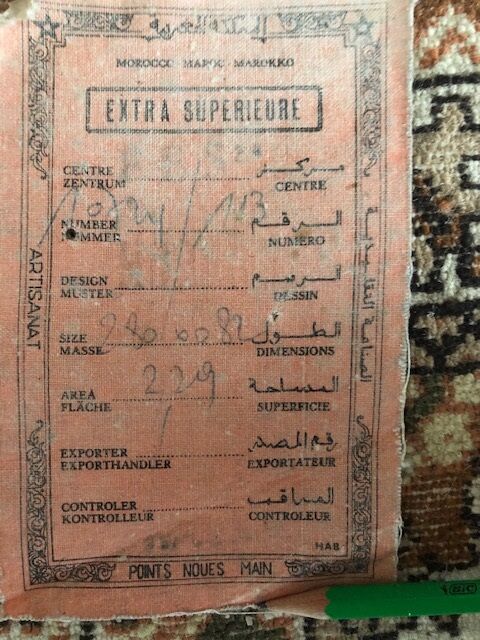 المملكة المغربية
MOROCCO MAROC MAROKKO
EXTRA SUPERIEURE
CENTRE مركز
ZENTRUM CENTRE
NUMBER الرقم
NUMMER NUMERO
DESIGN الرسم
MUSTER DESSIN
SIZE الطول
MASSE DIMENSIONS
AREA 229 المساحة
FLÄCHE SUPERFICIE
EXPORTER رقم المصدر
EXPORTHANDLER EXPORTATEUR
CONTROLER المراقب
KONTROLLEUR CONTROLEUR
HAB
POINTS NOUES MAIN
ARTISANAT
الصناعة التقليدية
BIC